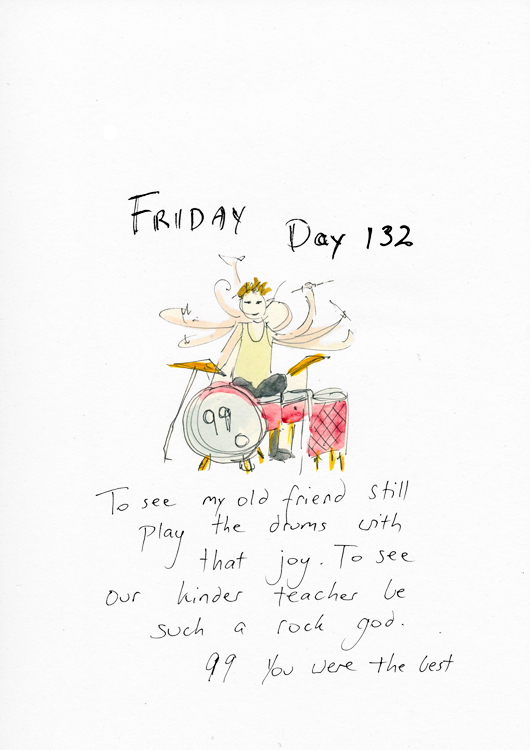 FRIIDAY Day 132
99
To see my old friend still
play the drums with
that joy. To see
our kinder teacher be
such a rock god.
99 You were the best